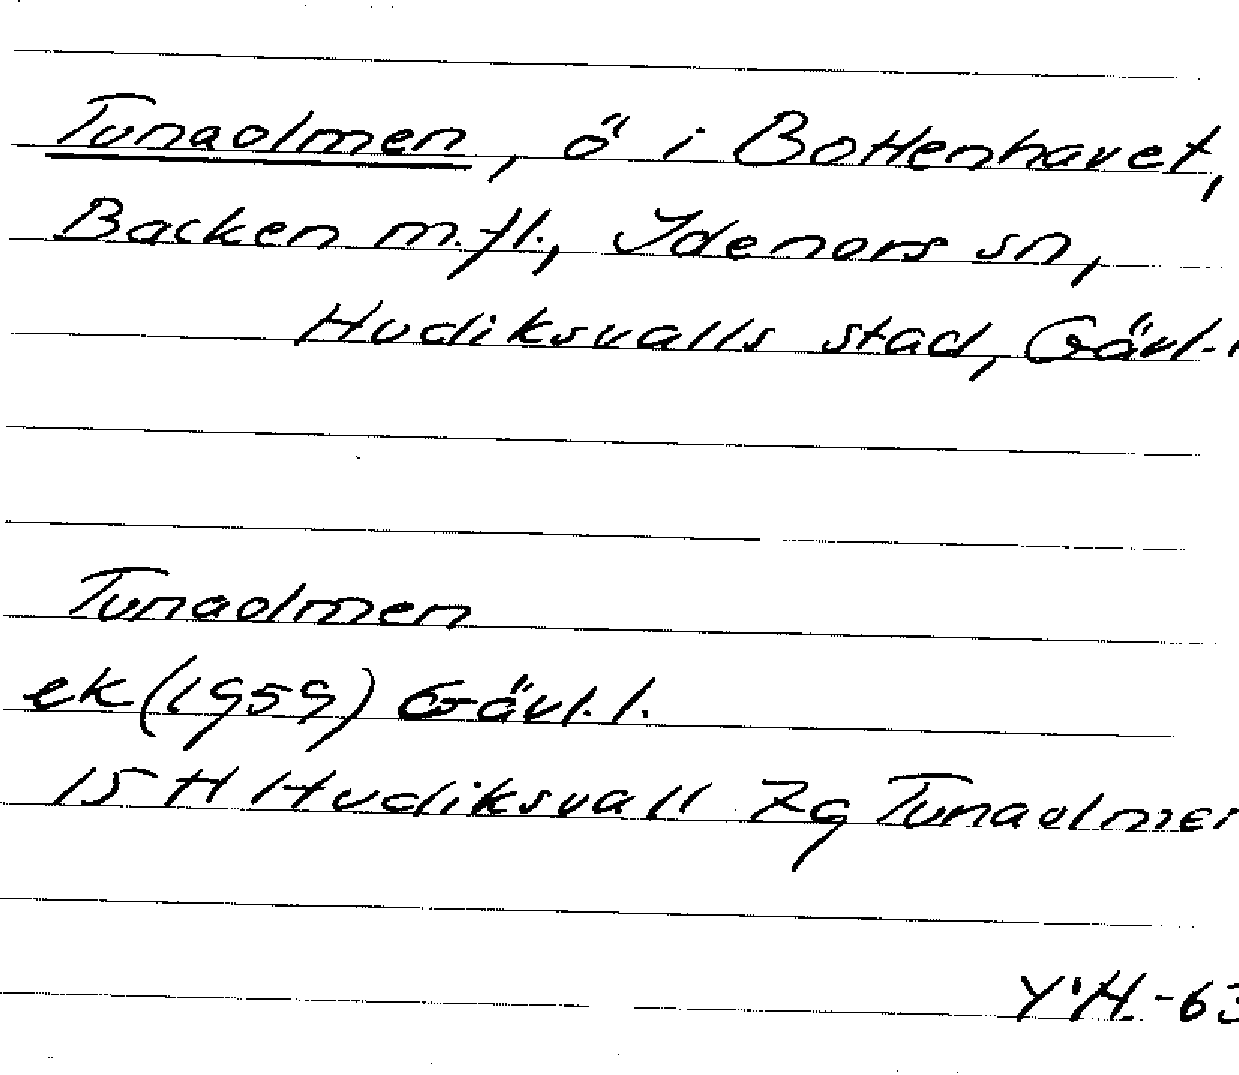 Tunaolmen, ö i Bottenhavet,
Backen m.fl., Idenors sn,
Hudiksvalls stad, Gävl.
Tunaolmen
ek (1959) Gävl.l.
15 H Hudiksvall 7g Tunaolmen
Y.H.-63